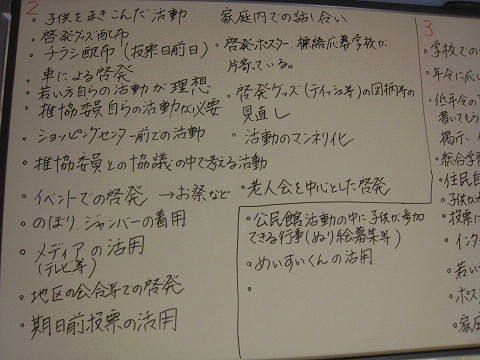 2
・子供をまきこんだ活動
・啓発グッズ配布
・チラシ配布(投票日前日)
・車による啓発
・若い方自らの活動が理想
・推協委員自らの活動が必要
・ショッピングセンター前での活動
・推協委員との協議の中で考える活動
・イベントでの啓発 →お祭など
・のぼり、ジャンバーの着用
・メディアの活用
(テレビ等)
・地区の会合等での啓発
・期日前投票の活用
家庭内での話し合い
・啓発ポスター、標語応募学校が
片寄っている。
・啓発グッズ(ティッシュ等)の図柄等の
見直し
・活動のマンネリ化
・老人会を中心とした啓発
・公民館活動の中に子供が参加
できる行事(ぬり絵募集等)
・めいすいくんの活用
・
3
学校での
・年令に広い
・低年令の
書いてもら
掲示、
・総合学習
・住民自
・子供が
・投票に
・インター
・若い
・ポス
・家庭